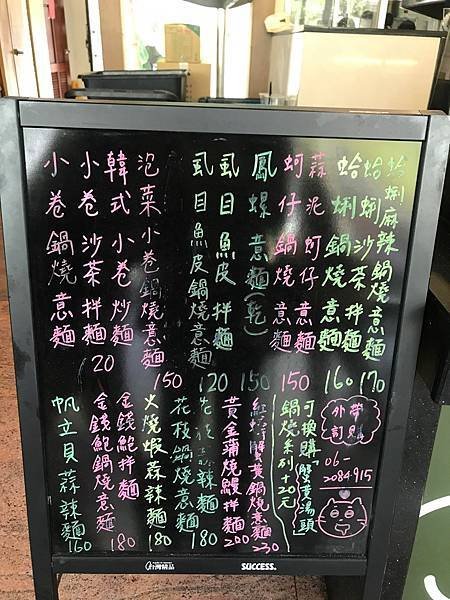 蛤蜊麻辣鍋燒意麵 170
蛤蜊沙茶拌麵
蛤蜊鍋燒意麵 160
蒜泥蚵仔意麵
蚵仔鍋燒意麵 150
鳳螺意麵(乾) 150
虱目魚皮拌麵 120
虱目魚皮鍋燒意麵
泡菜小卷鍋燒意麵 150
韓式小卷炒麵
小卷沙茶拌麵 20
小卷鍋燒意麵
外帶訂購
06-
2084915
可換購「蟹黃湯頭」
鍋燒系列+20元
紅蟳蟹黃鍋燒意麵 230
黃金蒲燒鰻拌麵 200
辣麵 180
花枝鍋燒意麵
火燒蝦蒜辣麵 180
金錢鮑拌麵 180
金錢鮑鍋燒意麵
帆立貝蒜辣麵 160
台灣精品
SUCCESS.